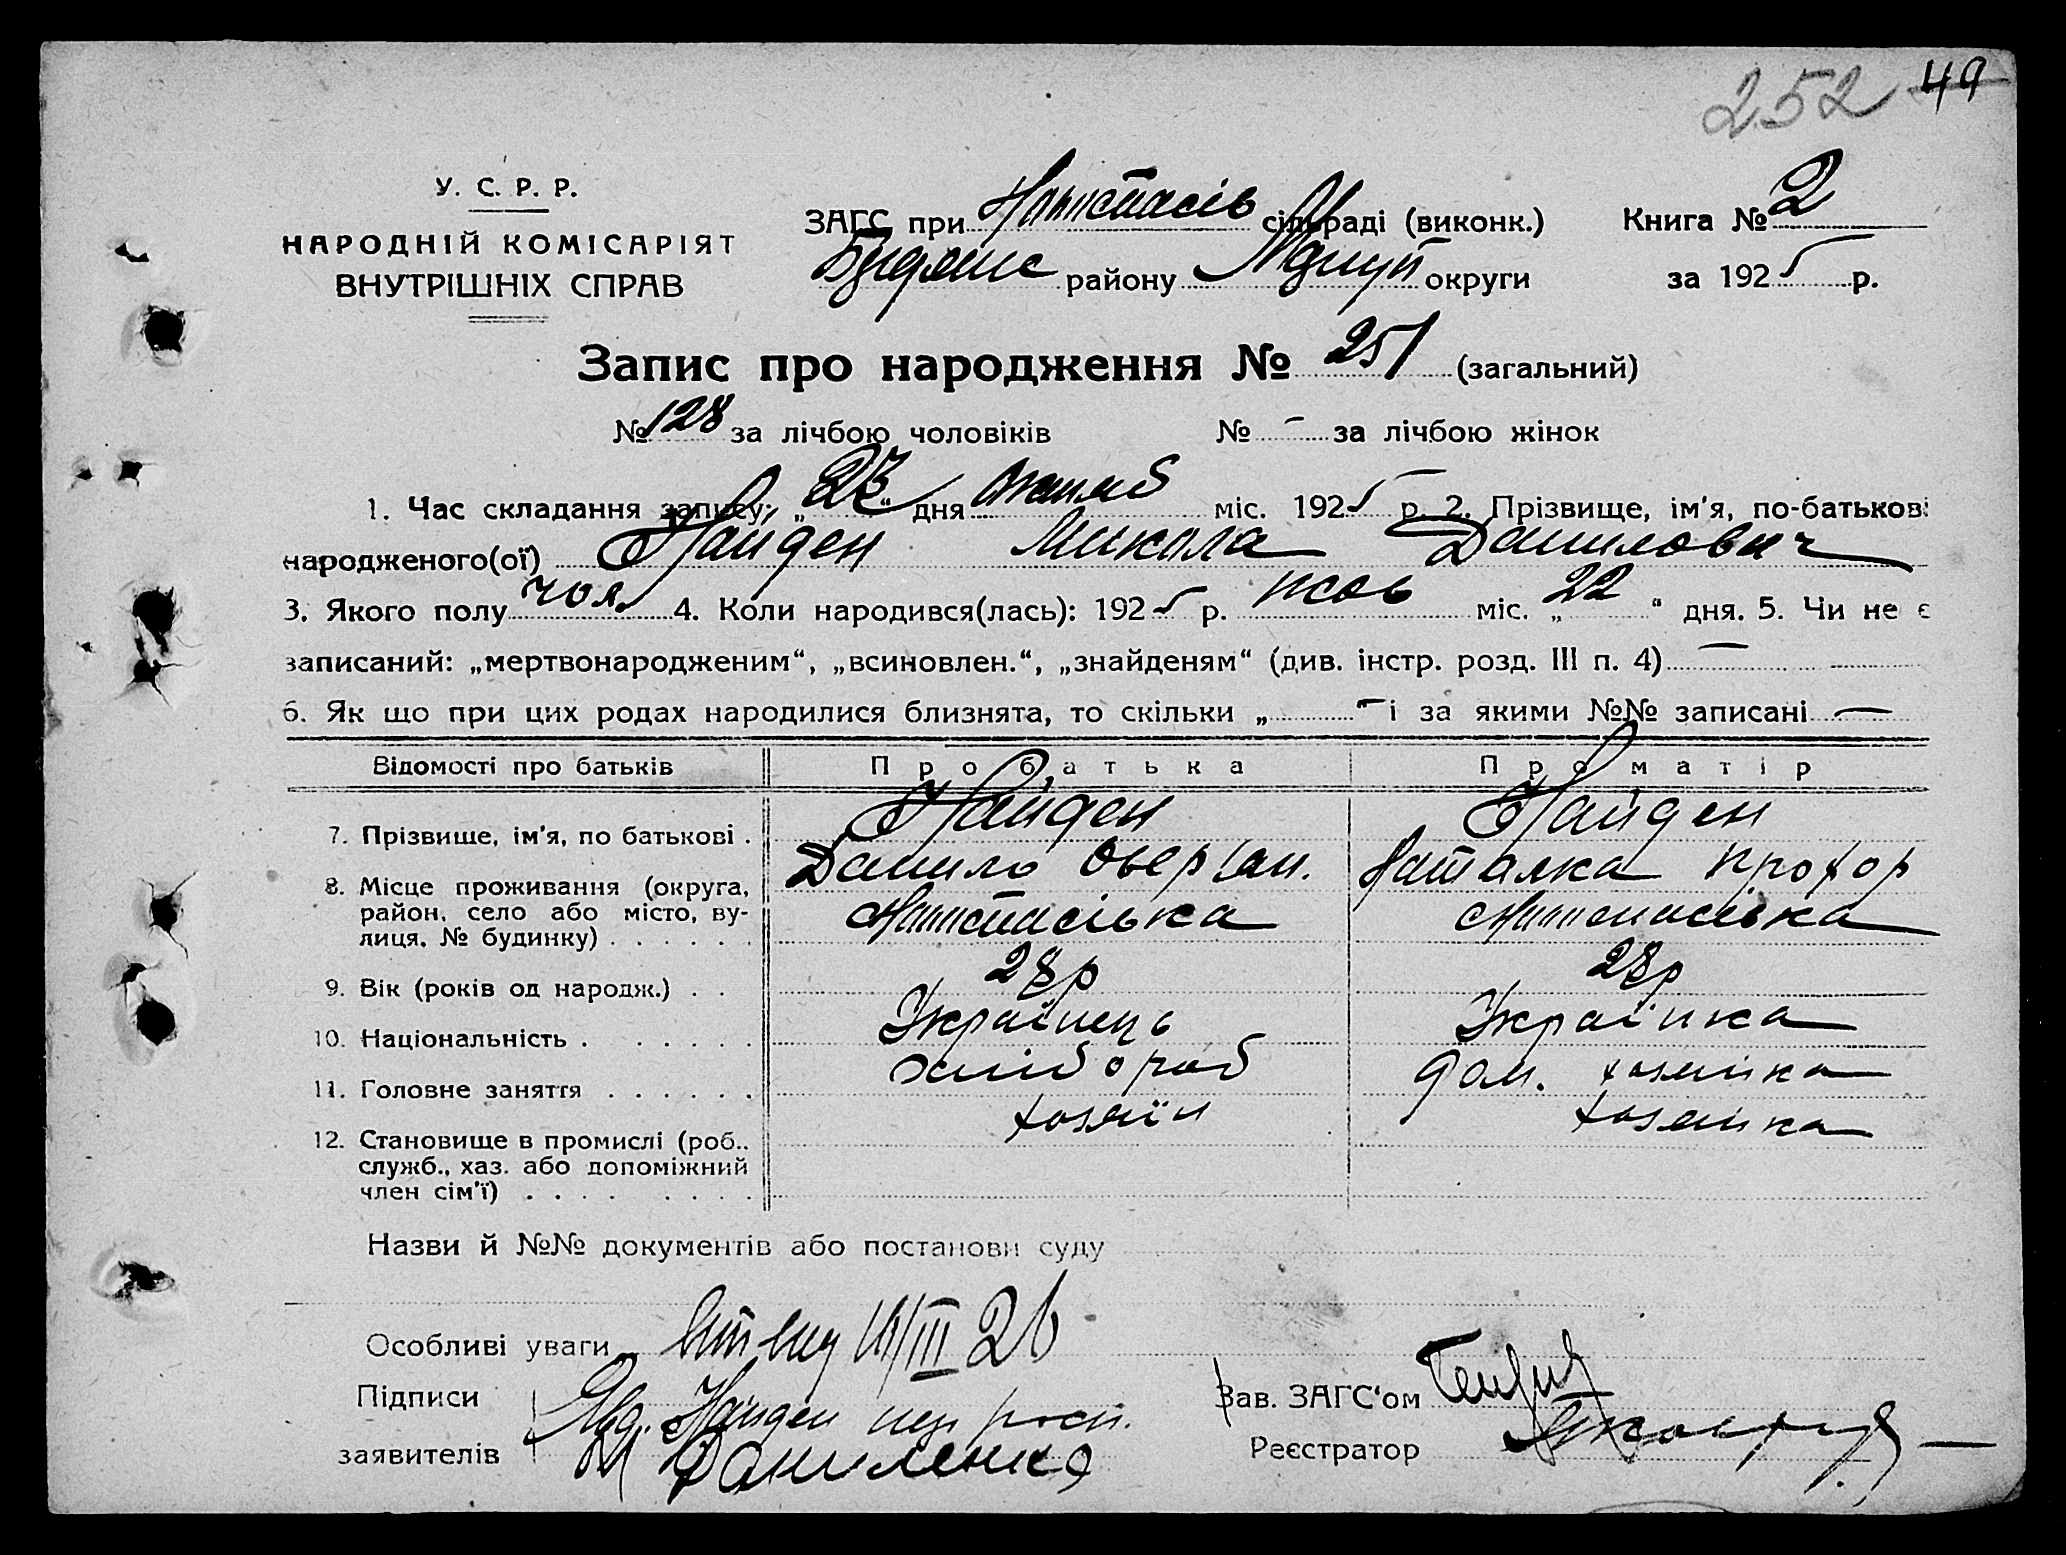 252 49
У. С. Р. Р.
НАРОДНІЙ КОМІСАРІЯТ
ВНУТРІШНІХ СПРАВ
ЗАГС при сільраді (виконк.) Книга № 2
району округи за 1925 р.
Запис про народження № 251 (загальний)
№ 128 за лічбою чоловіків № - за лічбою жінок
1. Час складання запису: „23“ дня міс. 1925 р. 2. Прізвище, ім'я, по-батькові
народженого(ої) Найден Микола Данилович
3. Якого полу чол. 4. Коли народився(лась): 1925 р. жов міс. „22“ дня. 5. Чи не є
записаний: „мертвонародженим“, „всиновлен.“, „знайденям“ (див. інстр. розд. III п. 4) —
6. Як що при цих родах народилися близнята, то скільки „ “ — і за якими №№ записані —
Відомості про батьків Про батька Про матір
7. Прізвище, ім'я, по батькові . Найден Найден
Данило Овер'ян. Наталка Прохор
8. Місце проживання (округа,
район, село або місто, ву-
лиця, № будинку) . . . . . .
9. Вік (років од народж.) . . 28р 28р
10. Національність . . . . . . Українець Українка
11. Головне заняття . . . . . . хлібороб дом. хозяйка
12. Становище в промислі (роб., хозяїн хозяйка
служб., хаз. або допоміжний
член сім'ї) . . . . . . . .
Назви й №№ документів або постанови суду
Особливі уваги III 26
Підписи Найден
заявителів Даниленко
Зав. ЗАГС'ом
Реєстратор